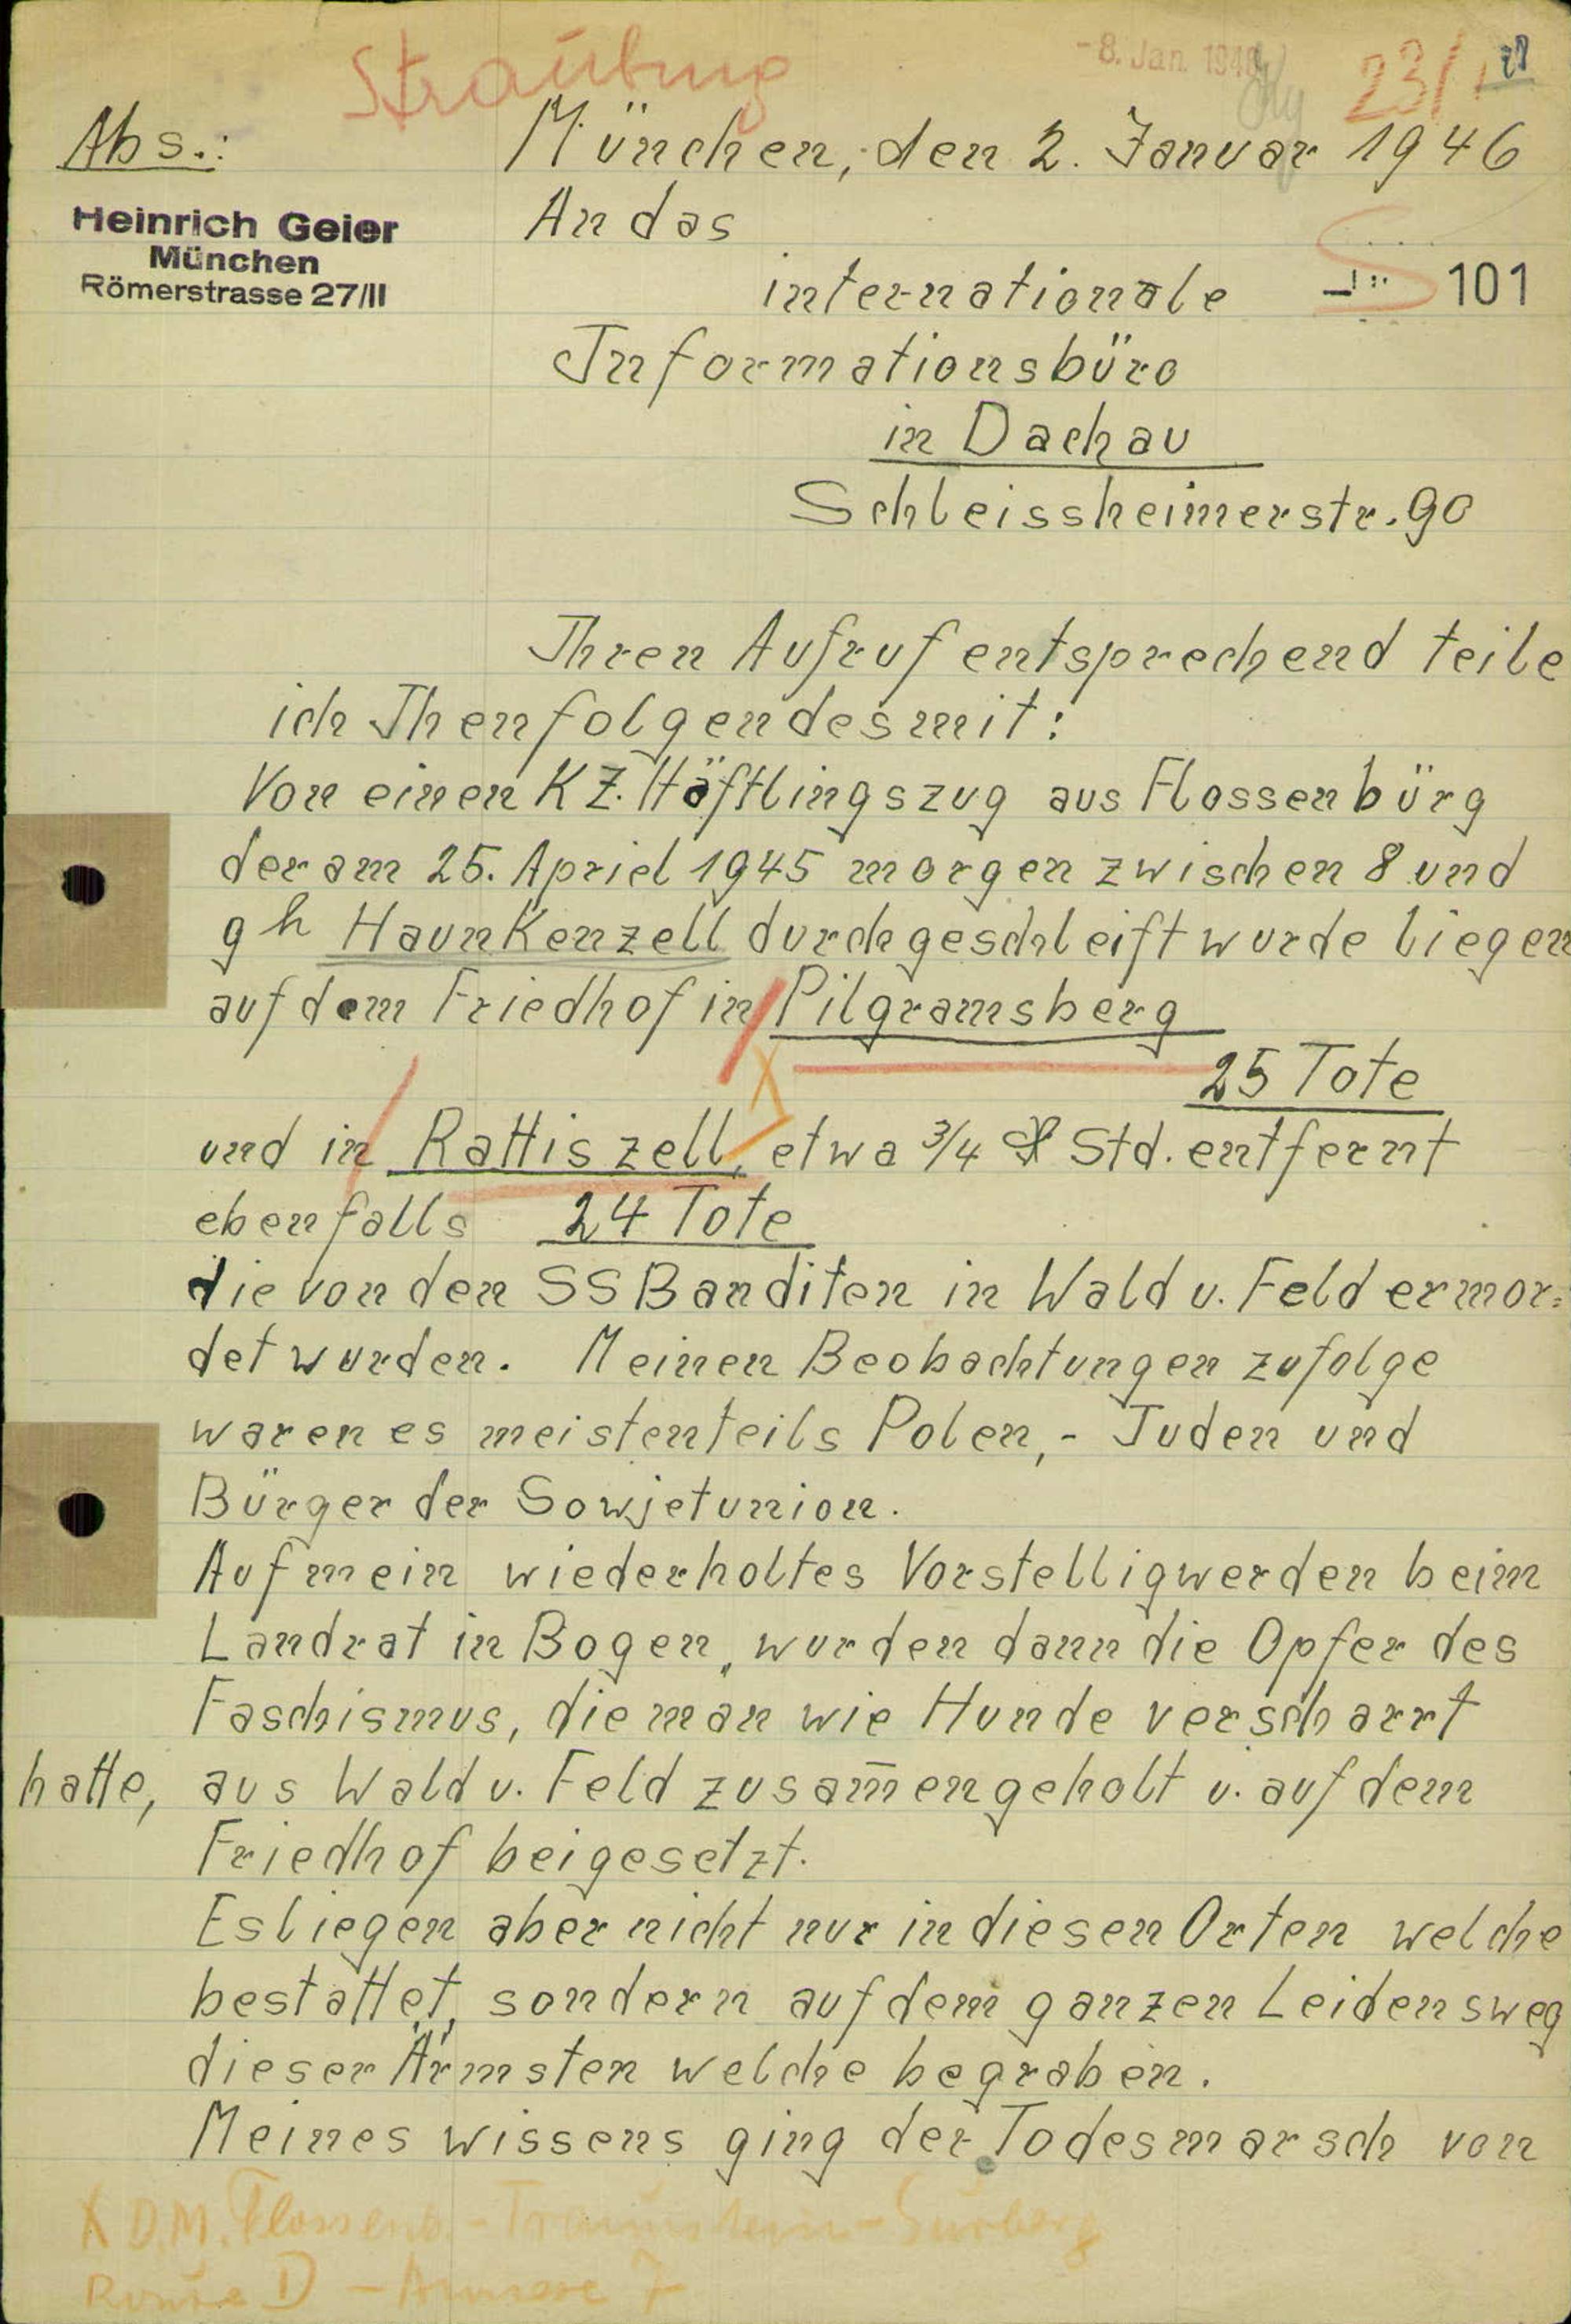 Straubing
-8. Jan. 1946
23/1
Abs.:
München, den 2. Januar 1946
Heinrich Geier
München
Römerstrasse 27/II
An das
internationale
101
Informationsbüro
in Dachau
Schleissheimerstr. 90
Ihren Aufruf entsprechend teile
ich Ihen folgendes mit:
Von einen KZ. Häftlingszug aus Flossenbürg
der am 25. Apriel 1945 morgen zwischen 8 und
9h Haunkenzell durchgeschleift wurde liegen
auf dem Friedhof in Pilgramsberg
25 Tote
und in Rattiszell, etwa 3/4 Std. entfernt
ebenfalls 24 Tote
die von den SS Banditen in Wald u. Feld ermor=
det wurden. Meinen Beobachtungen zufolge
waren es meistenteils Polen,- Juden und
Bürger der Sowjetunion.
Auf mein wiederholtes Vorstelligwerden beim
Landrat in Bogen, wurden dann die Opfer des
Faschismus, die man wie Hunde verscharrt
hatte, aus Wald u. Feld zusam̄engeholt u. auf dem
Friedhof beigesetzt.
Es liegen aber nicht nur in diesen Orten welche
bestattet, sondern auf dem ganzen Leidensweg
dieser Ärmsten welche begraben.
Meines wissens ging der Todesmarsch von
X D.M. Flossenb. - Traunstein - Surberg
Route D - Annexe 7